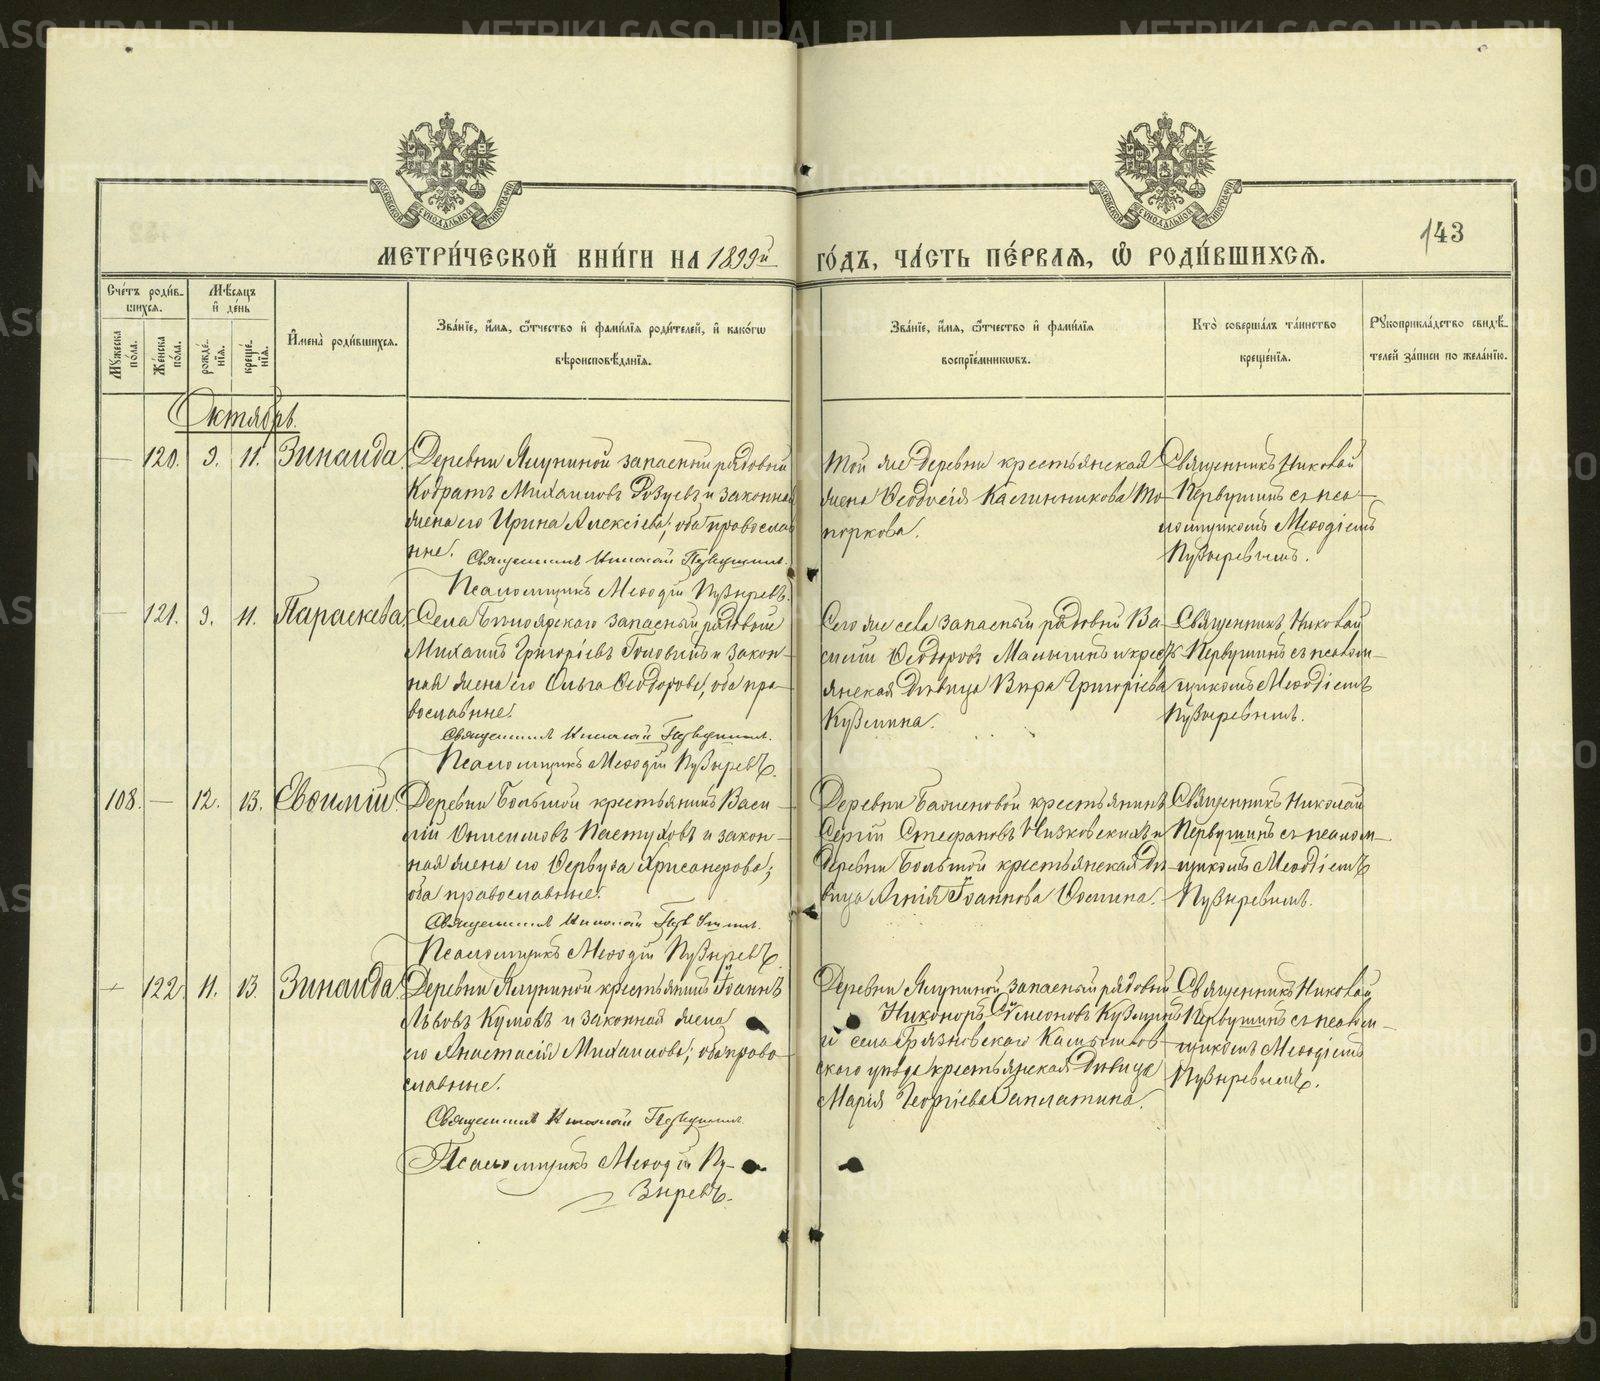 МЕТРИ́ЧЕСКОЙ КНИ́ГИ НА 1899й ГО́ДЪ, ЧА́СТЬ ПЕ́РВАѦ, Ѡ҆ РОДИ́ВШИХСѦ.
143
Сче́тъ роди́в-
шихся.
Мѣ́сяцъ
и҆ де́нь
Мꙋ́жеска по́ла.
Же́нска по́ла.
рожде́нїя.
креще́нїя.
И҆мена̀ роди́вшихся.
Зва́нїе, и҆́мя, ѻ҆́тчество и҆ фами́лїя роди́телей, и҆ како́гѡ
вѣроисповѣ́данїя.
Зва́нїе, и҆́мя, ѻ҆́тчество и҆ фами́лїя
воспрїе́мникѡвъ.
Кто̀ соверша́лъ та́инство
креще́нїя.
Рꙋкоприкла́дство свидѣ́-
телей за́писи по жела́нїю.
Октябрь.
— 120. 9. 11. Зинаида.
Деревни Ялуниной запасный рядовой
Кодратъ Михаиловъ и законная
жена его Ирина Алексіева; оба православ
ные.
Священникъ Николай Первушинъ.
Псаломщикъ Меѳодій Пузыревъ.
Той же деревни крестьянская
жена Ѳеодосія Калинникова То-
поркова.
Священникъ Николай
Первушинъ съ пса-
ломщикомъ Меѳодіемъ
Пузыревымъ.
— 121. 9. 11. Параскева.
Села Бѣлоярскаго запасный рядовой
Михаилъ Григоріевъ и закон-
ная жена его Ольга Ѳеодорова; оба пра-
вославные.
Священникъ Николай Первушинъ.
Псаломщикъ Меѳодій Пузыревъ.
Сего же села запасный рядовой Ва-
силій Ѳеодоровъ Малыгинъ и кресть-
янская дѣвица Вѣра Григоріева
Кузмина.
Священникъ Николай
Первушинъ съ псалом-
щикомъ Меѳодіемъ
Пузыревымъ.
108. — 12. 13. Евѳимій.
Деревни Большой крестьянинъ Васи-
лій Онисимовъ Пастуховъ и закон-
ная жена его Ѳервуѳа Хрисанфова;
оба православные.
Священникъ Николай Первушинъ.
Псаломщикъ Меѳодій Пузыревъ.
Деревни Баженовой крестьянинъ
Сергій Стефановъ Низковскихъ и
деревни Большой крестьянская дѣ-
вица Агнія Іоаннова Ѳомина.
Священникъ Николай
Первушинъ съ псалом-
щикомъ Меѳодіемъ
Пузыревымъ.
— 122. 11. 13. Зинаида.
Деревни Ялуниной крестьянинъ Іоаннъ
Львовъ Кумовъ и законная жена
его Анастасія Михаилова; оба право-
славные.
Священникъ Николай Первушинъ.
Псаломщикъ Меѳодій Пу-
зыревъ.
Деревни Ялуниной запасный рядовой
Никоноръ Сѵмеоновъ Кузминъ
и села Грязновскаго Камышлов-
скаго уѣзда крестьянская дѣвица
Марія Георгіева Заплатина.
Священникъ Николай
Первушинъ съ псалом-
щикомъ Меѳодіемъ
Пузыревымъ.
METRIKI.GASO-URAL.RU